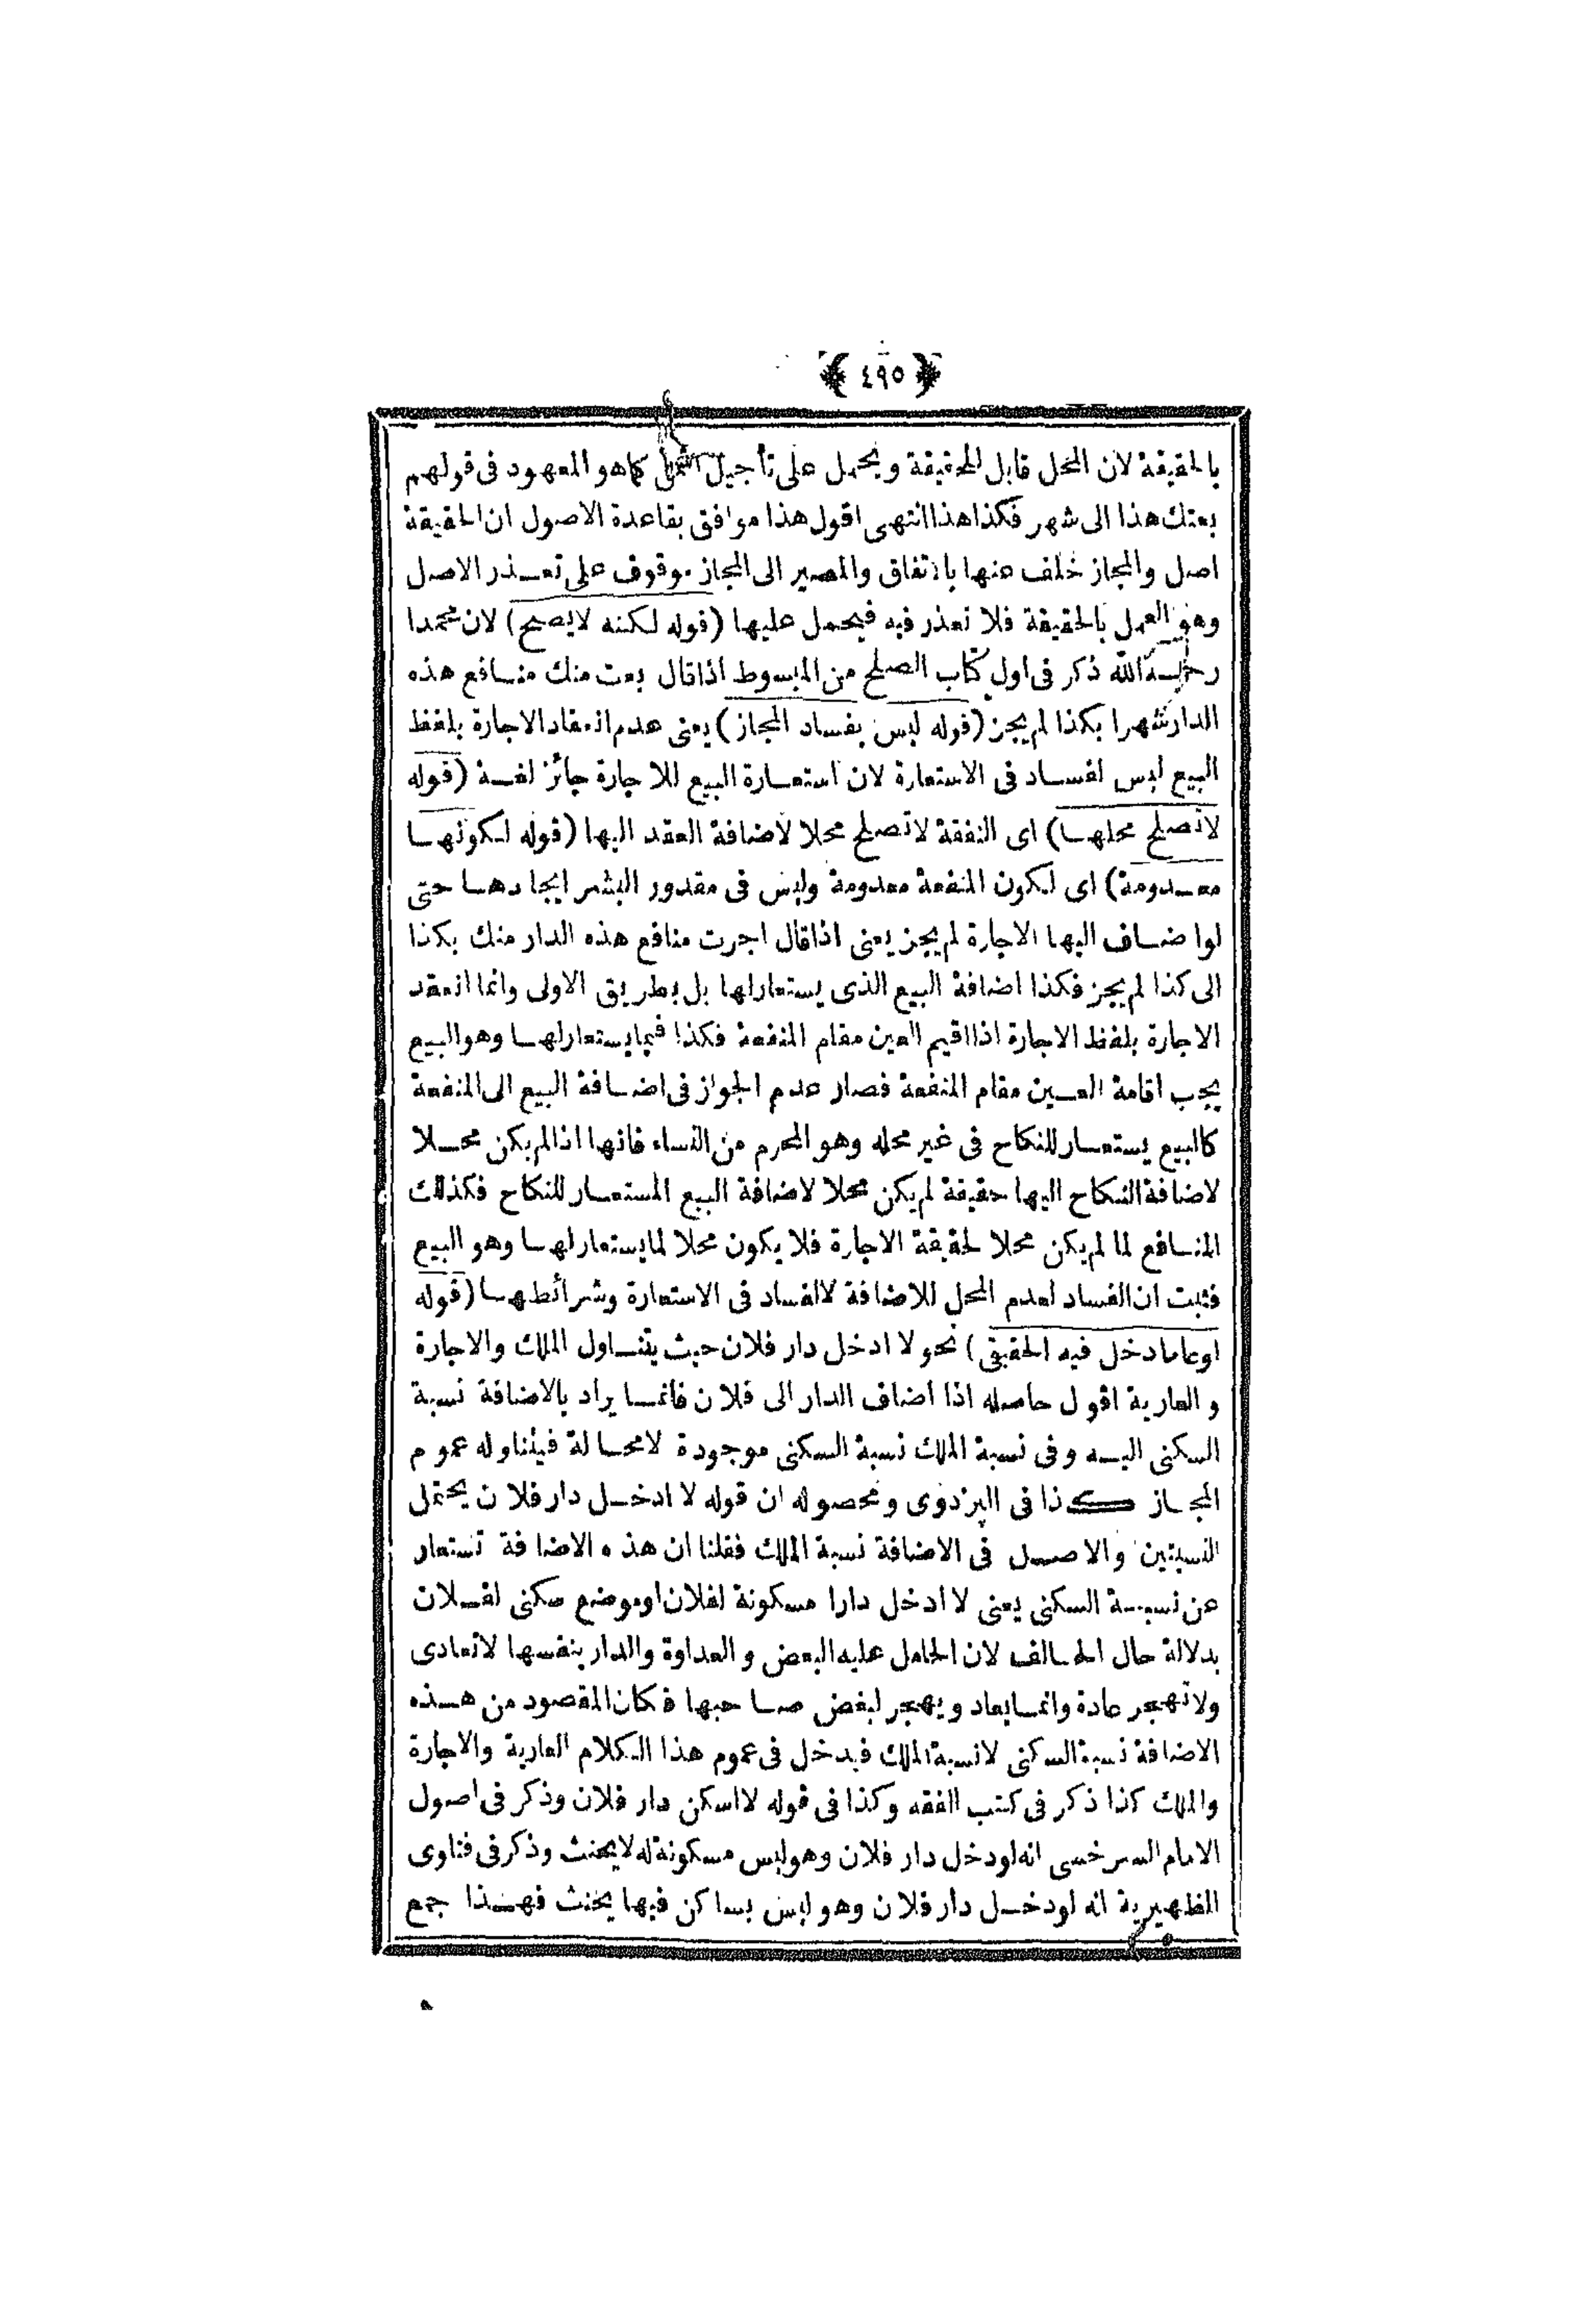 ﴿ ٤٩٥ ﴾
بالحقيقة لان المحل قابل للحقيقة ويحمل على تأجيل الثمن كما هو المعهود فى قولهم
بعتك هذا الى شهر فكذا هذا انتهى اقول هذا موافق بقاعدة الاصول ان الحقيقة
اصل والمجاز خلف عنها باتفاق والمصير الى المجاز موقوف على تعذر الاصل
وهو العمل بالحقيقة فلا تعذر فيه فيحمل عليها (قوله لكنه لايصح) لان محمدا
رحمه الله ذكر فى اول كتاب الصلح من المبسوط اذا قال بعت منك منافع هذه
الدار شهرا بكذا لم يجز (قوله ليس بفساد المجاز) يعنى عدم انعقاد الاجارة بلفظ
البيع ليس لفساد فى الاستعارة لان استعارة البيع للاجارة جائز لغة (قوله
لاتصلح محلها) اى النفقة لاتصلح محلا لاضافة العقد اليها (قوله لكونها
معدومة) اى لكون المنفعة معدومة وليس فى مقدور البشر ايجادها حتى
لو اضاف اليها الاجارة لم يجز يعنى اذا قال اجرت منافع هذه الدار منك بكذا
الى كذا لم يجز فكذا اضافة البيع الذى يستعار لها بل بطريق الاولى وانما انعقد
الاجارة بلفظ الاجارة اذا اقيم العين مقام المنفعة فكذا فيما يستعار لها وهو البيع
يجب اقامة العين مقام المنفعة فصار عدم الجواز فى اضافة البيع الى المنفعة
كالبيع يستعار للنكاح فى غير محله وهو المحرم من النساء فانها اذا لم يكن محلا
لاضافة النكاح اليها حقيقة لم يكن محلا لاضافة البيع المستعار للنكاح فكذلك
المنافع لما لم يكن محلا لحقيقة الاجارة فلا يكون محلا لما يستعار لها وهو البيع
فثبت ان الفساد لعدم المحل للاضافة لا لفساد فى الاستعارة وشرائطها (قوله
او عاما دخل فيه الحقيقى) نحو لا ادخل دار فلان حيث يتناول الملك والاجارة
والعارية اقول حاصله اذا اضاف الدار الى فلان فانما يراد بالاضافة نسبة
السكنى اليه وفى نسبة الملك نسبة السكنى موجودة لامحالة فيتناوله عموم
المجاز كذا فى البزدوى ومحصوله ان قوله لا ادخل دار فلان يحتمل
النسبتين والاصل فى الاضافة نسبة الملك فقلنا ان هذه الاضافة تستعار
عن نسبة السكنى يعنى لا ادخل دارا مسكونة لفلان او موضع سكنى لفلان
بدلالة حال الحالف لان الحامل عليه البغض والعداوة والدار بنفسها لاتعادى
ولاتهجر عادة وانما يعاد ويهجر لبغض صاحبها فكان المقصود من هذه
الاضافة نسبة السكنى لانسبة الملك فيدخل فى عموم هذا الكلام العارية والاجارة
والملك كذا ذكر فى كتب الفقه وكذا فى قوله لا اسكن دار فلان وذكر فى اصول
الامام السرخسى انه لو دخل دار فلان وهو ليس مسكونة له لايحنث وذكر فى فتاوى
الظهيرية انه لو دخل دار فلان وهو ليس بساكن فيها يحنث فهذا جمع